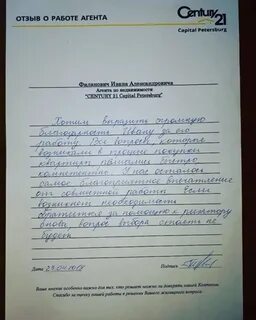 ОТЗЫВ О РАБОТЕ АГЕНТА
Century 21
Capital Petersburg
Филанович Ивана Александровича
Агента по недвижимости
"CENTURY 21 Capital Petersburg"
Хотим выразить огромную
благодарность Ивану за его
работу. Все вопросы, которые
возникали в процессе покупки
квартиры решались быстро,
компетентно. У нас осталось
самое благоприятное впечатление
от совместной работы. Если
возникнет необходимость
обратиться за помощью к риэлтору
вновь, вопрос выбора стоять не
будет.
Дата
Подпись
Ваше мнение особенно важно для тех, кто решает можно ли доверять нашей Компании.
Спасибо за оценку нашей работы в решении Вашего жилищного вопроса.